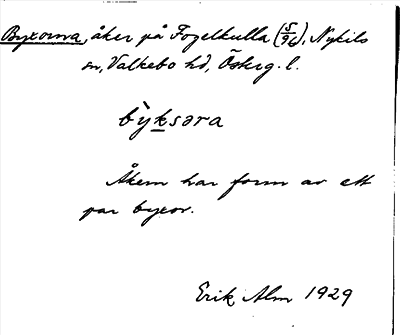 Byxorna, åker på Fogelkulla (5/96), Nykils
sn, Valkebo hd, Österg. l.
bỳksəra
Åkern har form av ett
par byxor.
Erik Alm 1929